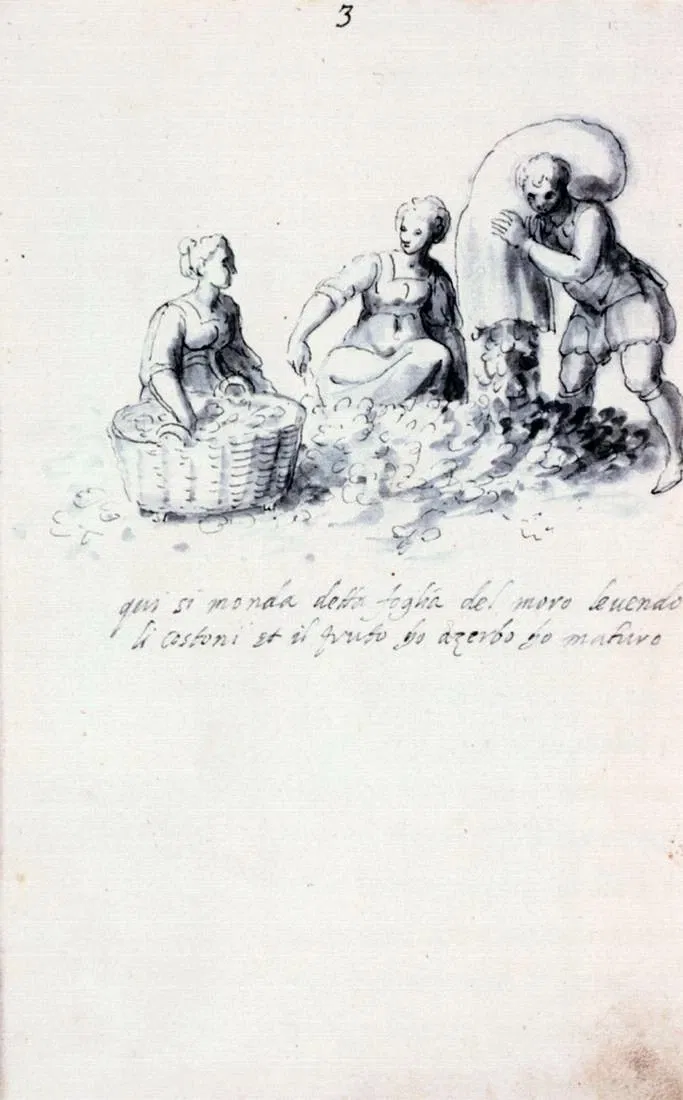 3
qui si monda detta foglia del moro levendo
li costoni et il fruto ho azerbo ho maturo